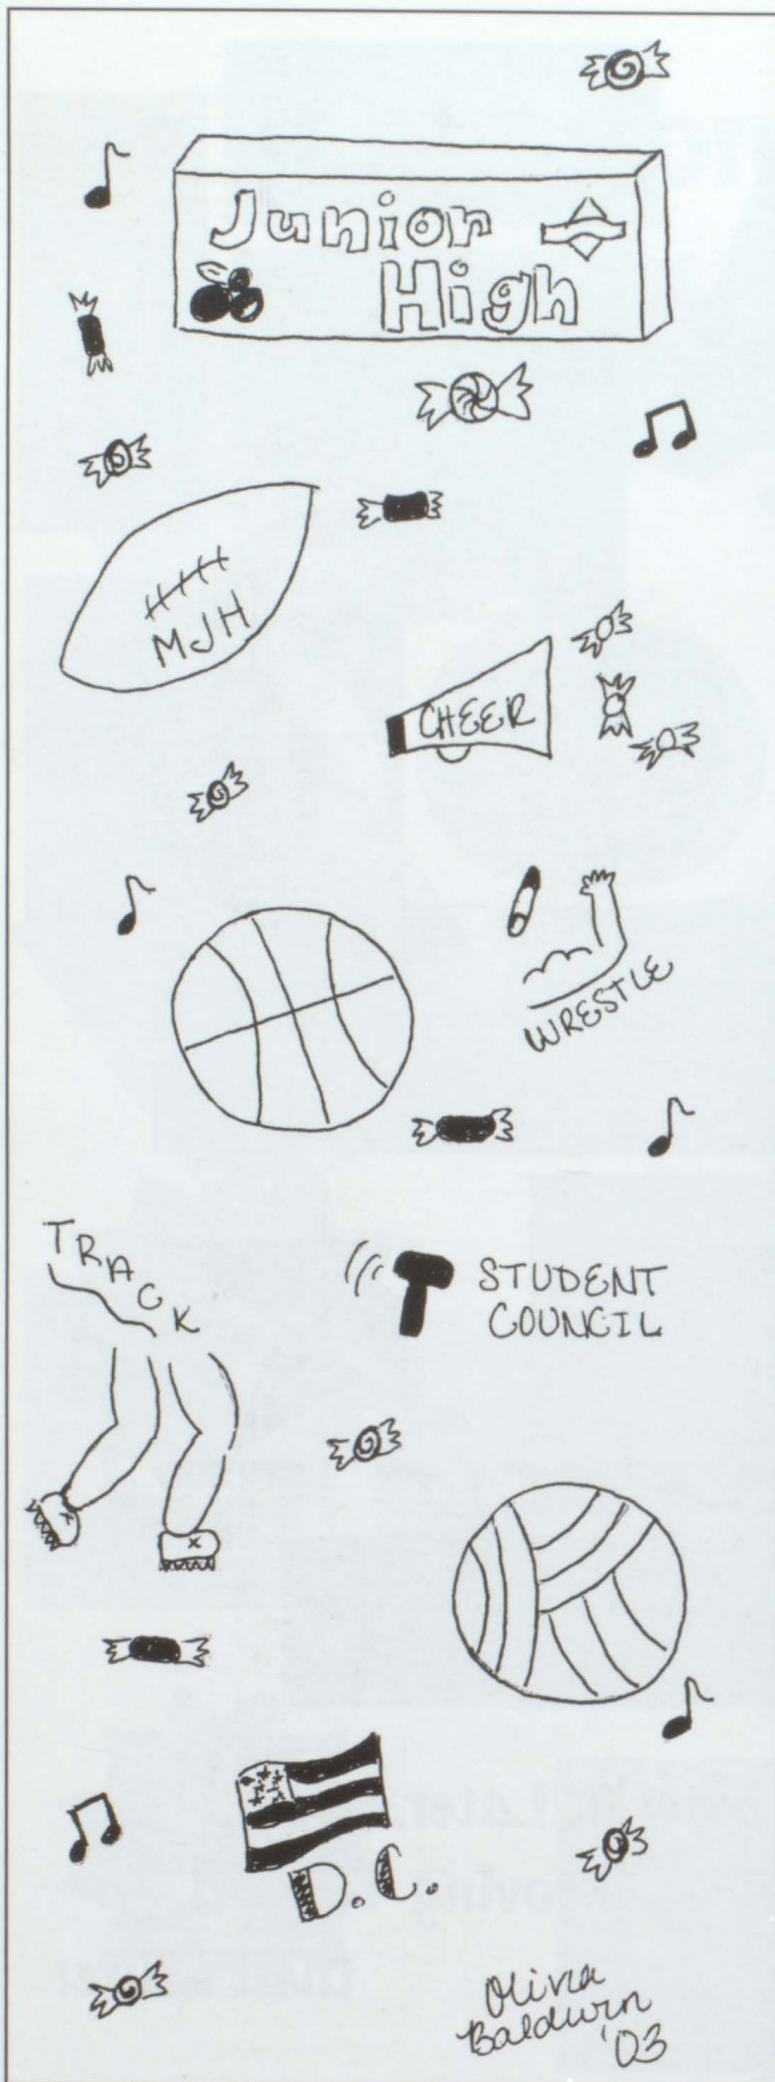 Junior
High
MJH
CHEER
WRESTLE
TRACK
STUDENT
COUNCIL
D.C.
Olivia
Baldwin
'03